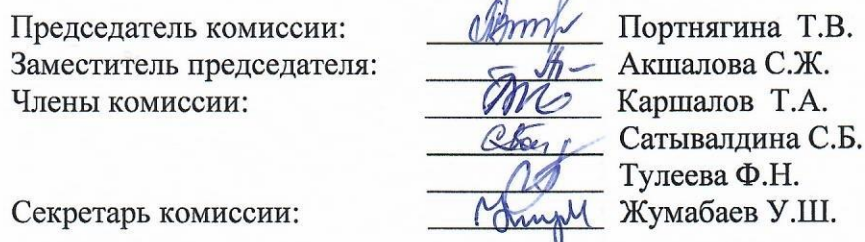 Председатель комиссии: Портнягина Т.В.
Заместитель председателя: Акшалова С.Ж.
Члены комиссии: Каршалов Т.А.
Сатывалдина С.Б.
Тулеева Ф.Н.
Секретарь комиссии: Жумабаев У.Ш.